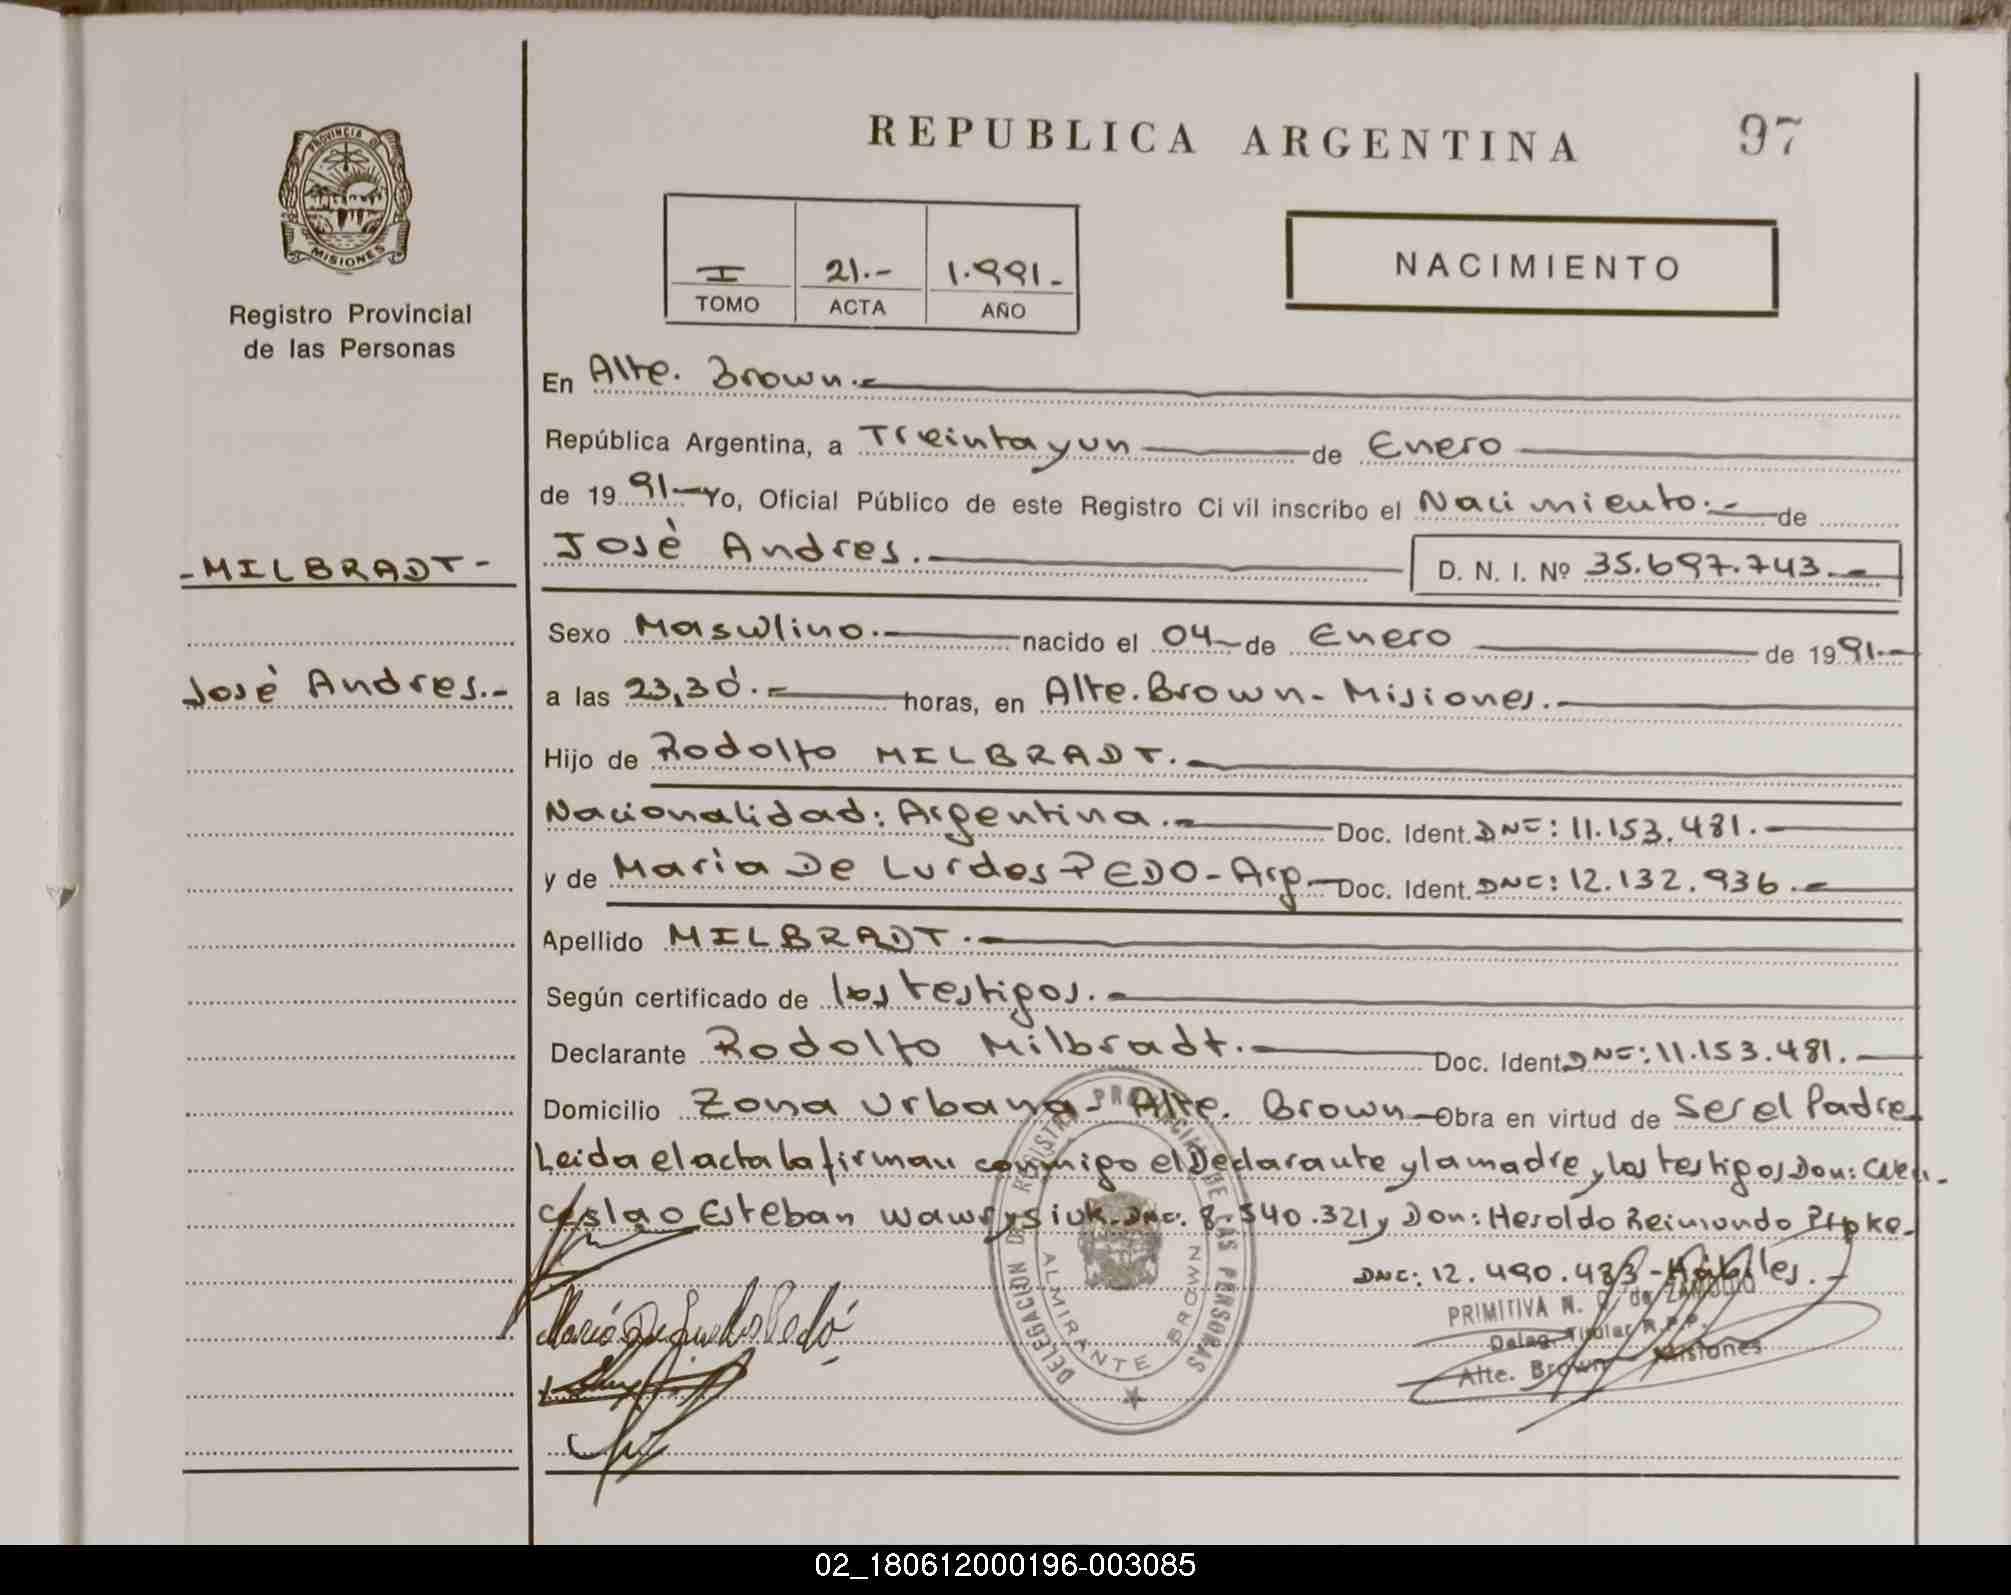 REPUBLICA ARGENTINA
97
PROVINCIA DE
MISIONES
Registro Provincial
de las Personas
I 21.- 1.991.-
TOMO ACTA AÑO
NACIMIENTO
En Alte. Brown.-
República Argentina, a Treinta y un de Enero
de 19 91 Yo, Oficial Público de este Registro Civil inscribo el Nacimiento.- de
José Andres.- D. N. I. Nº 35.697.743.-
-MILBRADT-
José Andres.-
Sexo Masculino.- nacido el 04 de Enero de 1991.-
a las 23,30.- horas, en Alte. Brown - Misiones.-
Hijo de Rodolfo MILBRADT.-
Nacionalidad: Argentina.- Doc. Ident. DNI: 11.153.481.-
y de Maria De Lurdes PEDO - Arg.- Doc. Ident. DNI: 12.132.936.-
Apellido MILBRADT.-
Según certificado de los testigos.-
Declarante Rodolfo Milbradt.- Doc. Ident. DNI: 11.153.481.-
Domicilio Zona Urbana - Alte. Brown Obra en virtud de Ser el Padre
Leida el acta la firman conmigo el Declarante y la madre y los testigos Don:
Esteban Wawrysiuk. DNI. 8.540.321 y Don: Heroldo Reimundo
DNI: 12.490.483 - Hábiles.-
DELEGACION DE REGISTRO PROVINCIAL DE LAS PERSONAS
ALMIRANTE BROWN
PRIMITIVA N. de
Deleg. Titular R.P.P.
Alte. Brown Misiones
02_180612000196-003085